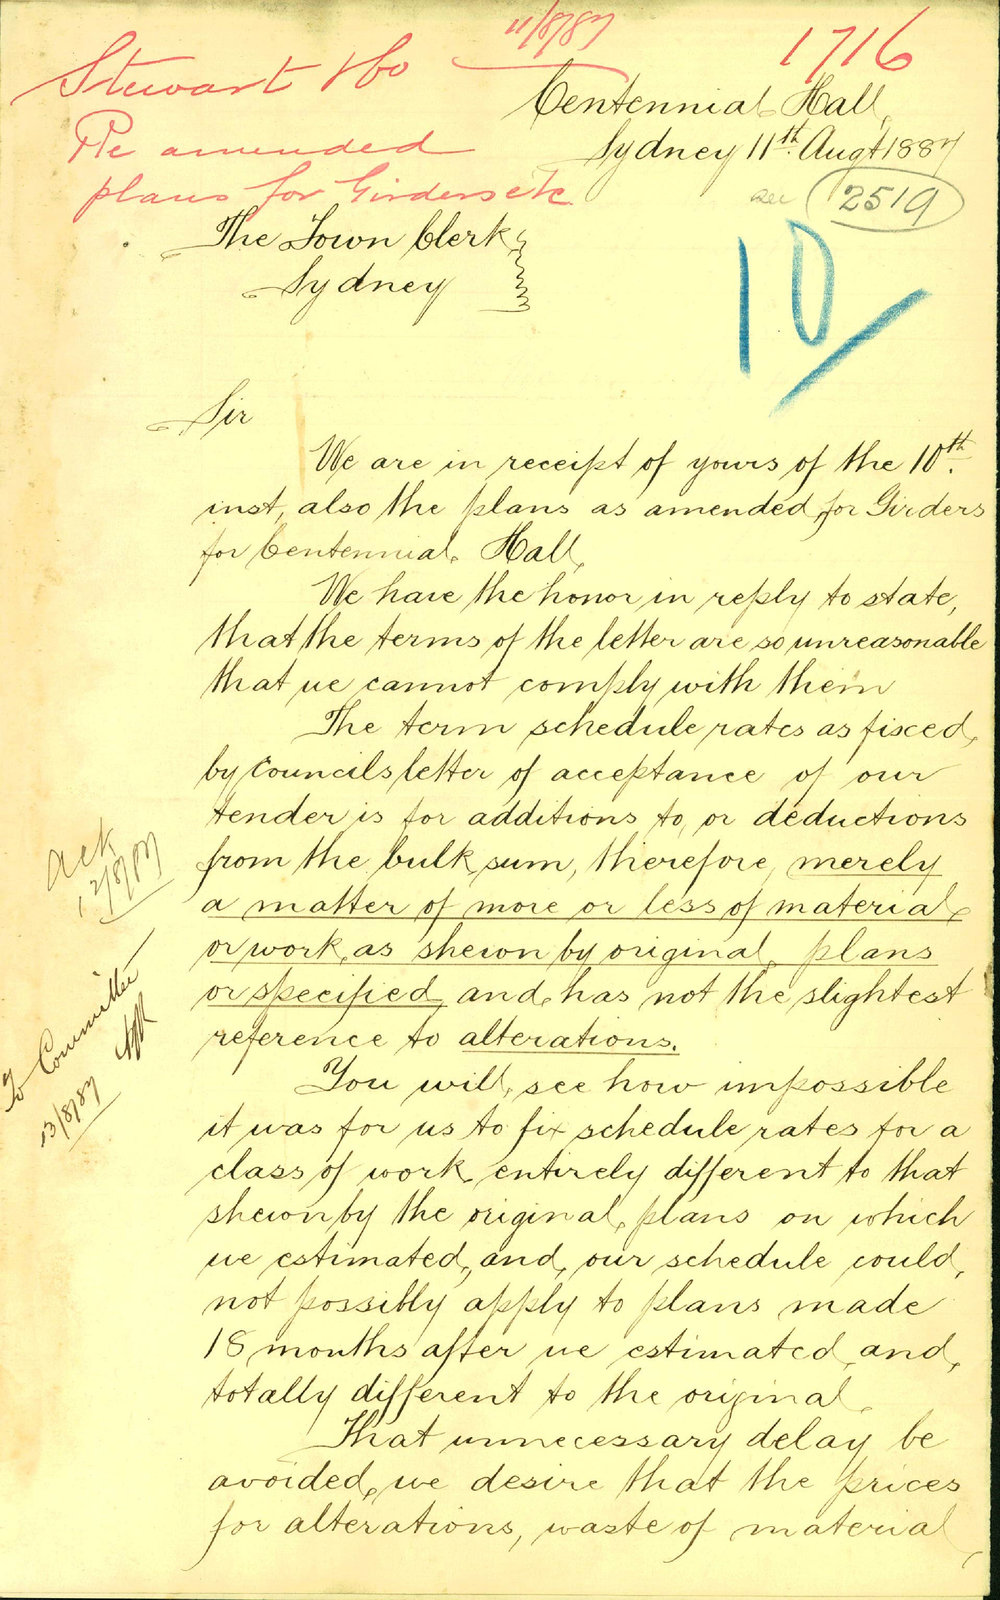 11/8/87
1716
Stewart & Co
Re amended
plans for Girders etc
Centennial Hall,
Sydney 11th Augt 1887
2519
10/
The Town Clerk
Sydney
Sir
We are in receipt of yours of the 10th
inst, also the plans as amended for Girders
for Centennial Hall,
We have the honor in reply to state,
that the terms of the letter are so unreasonable
that we cannot comply with them
The term schedule rates as fixed
by Councils letter of acceptance of our
tender is for additions to, or deductions
from the bulk sum, therefore, merely
a matter of more or less of material
or work, as shewn by original plans
or specified, and has not the slightest
reference to alterations.
You will see how impossible
it was for us to fix schedule rates for a
class of work entirely different to that
shewn by the original plans on which
we estimated, and, our schedule could,
not possibly apply to plans made
18 months after we estimated, and,
totally different to the original.
That unnecessary delay be
avoided, we desire that the prices
for alterations, waste of material,
Ack
12/8/87
To Committee
13/8/87